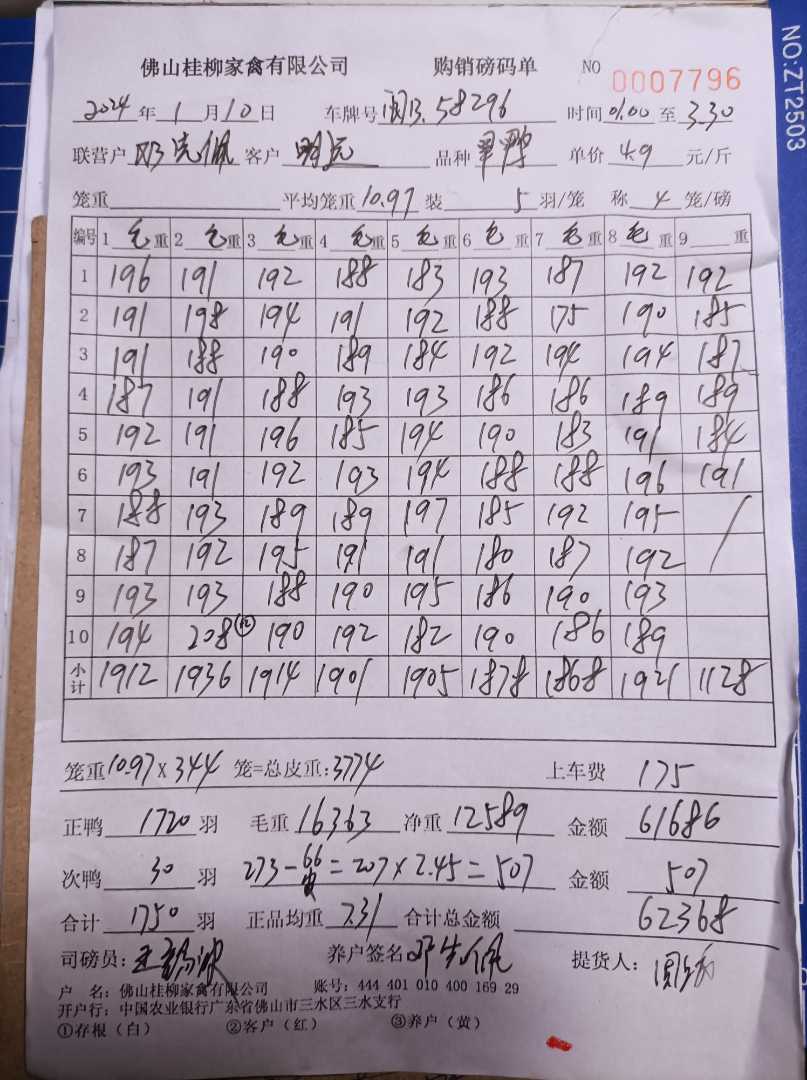 NO:ZT2503
佛山桂柳家禽有限公司 购销磅码单 NO 0007796
2024 年 1 月 10 日 车牌号 闽B.58296 时间 01.00 至 3.30
联营户 邓 佩 客户 明记 品种 单价 4.9 元/斤
笼重 平均笼重 10.97 装 5 羽/笼 称 4 笼/磅
编号 1 毛 重 2 毛 重 3 毛 重 4 毛 重 5 毛 重 6 毛 重 7 毛 重 8 毛 重 9 重
1 196 191 192 188 183 193 187 192 192
2 191 198 194 191 192 188 175 190 185
3 191 188 190 189 184 192 194 194 187
4 187 191 188 193 193 186 186 189 189
5 192 191 196 185 194 190 183 191 184
6 193 191 192 193 194 188 188 196 191
7 188 193 189 189 197 185 192 195 /
8 187 192 195 191 191 180 187 192
9 193 193 188 190 195 186 190 193
10 194 208 190 192 182 190 186 189
小计 1912 1936 1914 1901 1905 1878 1868 1921 1128
笼重 10.97 X 344 笼=总皮重: 3774 上车费 175
正鸭 1720 羽 毛重 16363 净重 12589 金额 61686
次鸭 30 羽 273-66=207×2.45=507 金额 507
合计 1750 羽 正品均重 7.31 合计总金额 62368
司磅员: 养户签名 提货人:
户 名: 佛山桂柳家禽有限公司 账号: 444 401 010 400 169 29
开户行: 中国农业银行广东省佛山市三水区三水支行
①存根(白) ②客户(红) ③养户(黄)